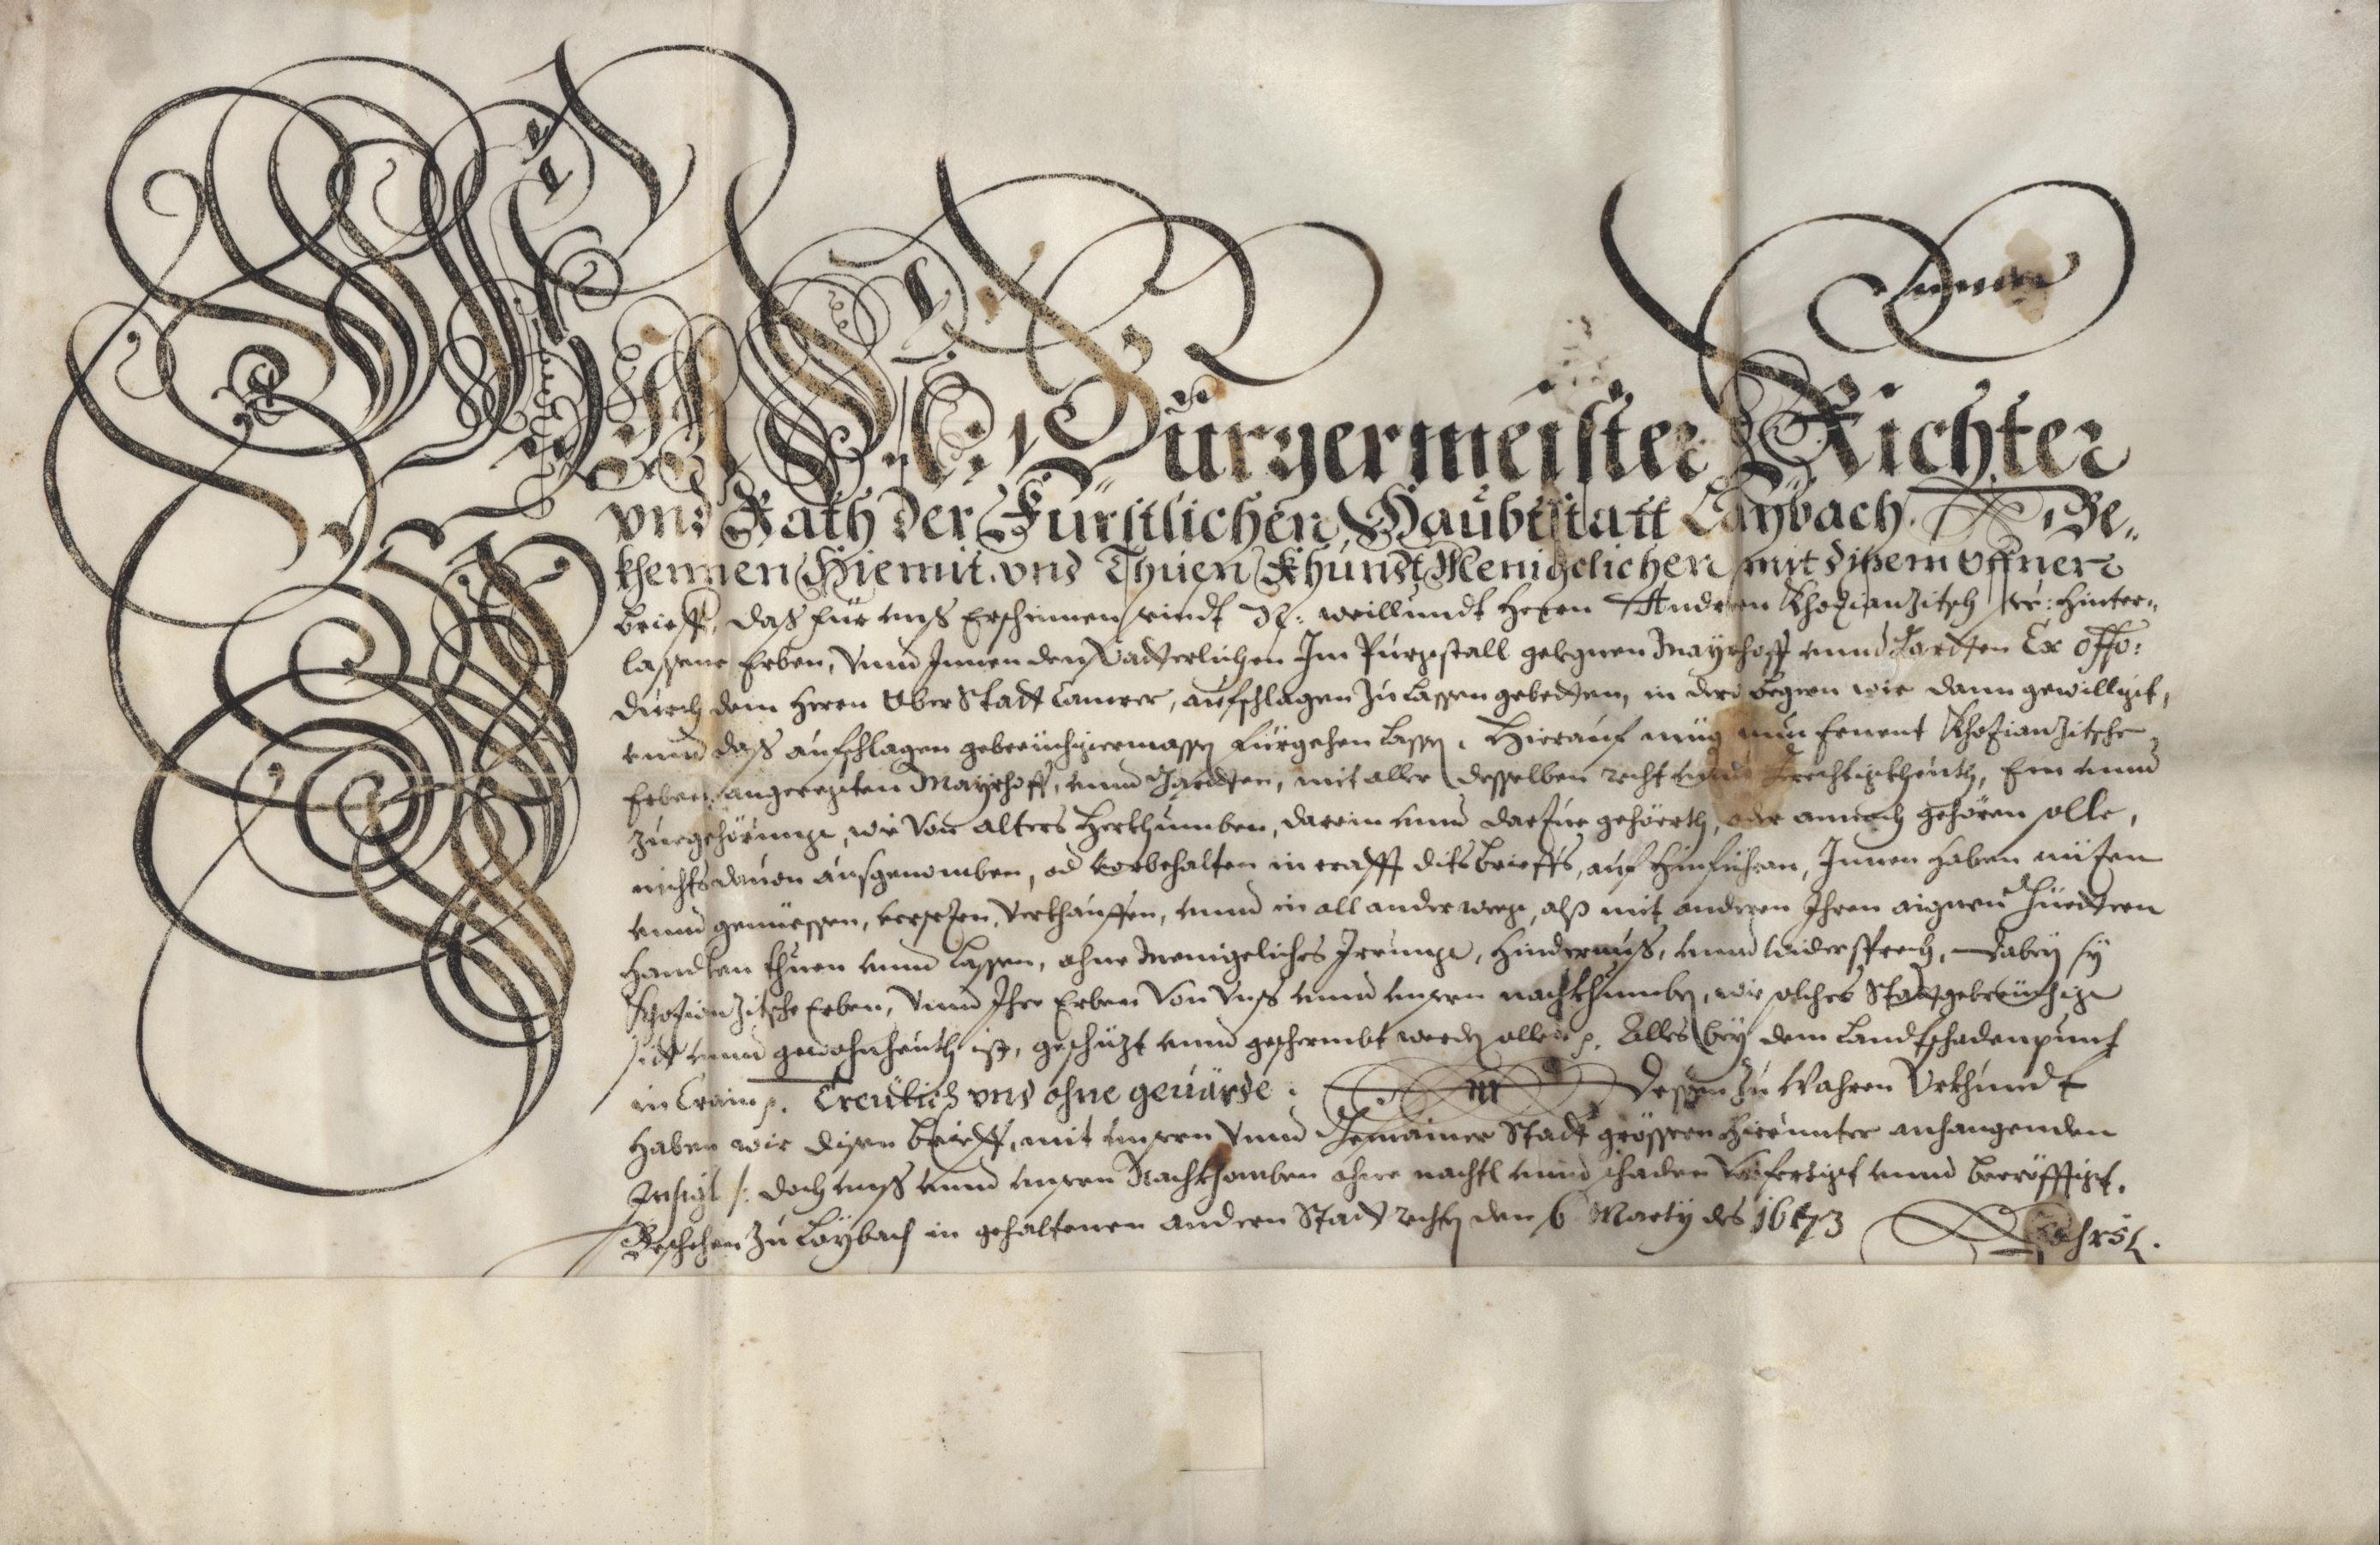 WIR Bürgermeister Richter
vnd Rath der Fürstlichen Haubtstatt Laÿbach. Be„
khennen Hiemit. vnd Thuen Khundt Menigclichen mit disem offnen
brieff, daß für vnß Erschinnen seindt weillundt Herrn Andreen Khosianzitsch hinter„
lassene Erben, Vnnd Innen den Vatterlichen Im Purgstall gelegnen Mayrhoff vnnd Gartten Ex offo:
durch dem Herrn Ober Statt Camrer, aufschlagen zu lassen gebetten, in dero begern wir dann gewilligt,
vnnd daß aufschlagen gebreuchigermassen fürgehen lassen. Hierauf müg nun Khosianzitsche
Erben angeregten Mayrhoff, vnnd Gartten, mit aller desselben recht vnnd Grechtigkheith, Ein vnnd
zuegehörunge, wie von alters Herkhumben, darein vnnd darzue gehöerth, oder annoch gehören solle,
nichts dauon außgenomben, od vorbehalten in crafft dits brieffs, auf Hinfüran, Innen haben nüzen
vnnd genüessen, versezen, verkhauffen, vnnd in all ander weege, alß mit anderen Ihren aignen Güettern
handlen thuen vnnd lassen, ohne Menigcliches Irrunge, Hindernuß, vnnd widersprech, dabey sy
Khosianzitsche Erben, Vnnd Ihre Erben Von Vnß vnnd vnsern nachkhumben, wie solches Stattgebreuchige
sitt vnnd gewohnheith ist, geschüzt vnnd geschermbt werden sollen p. Alles bey dem Landtschadenpunt
in Crain p. Treülich vnd ohne geuärde. Dessen zu Wahren Vrkhundt
Haben wir disen brieff, mit vnsern Vnnd Gemainer Statt grössern hierunter anhangenden
Insigl /: doch vnß vnnd vnsern Nachkhomben ohne nachtl vnnd schaden Verfertigt vnnd becröfftigt.
Beschehen zu Laÿbach in gehaltenen andern Statt rechten den 6 Marty des 1673